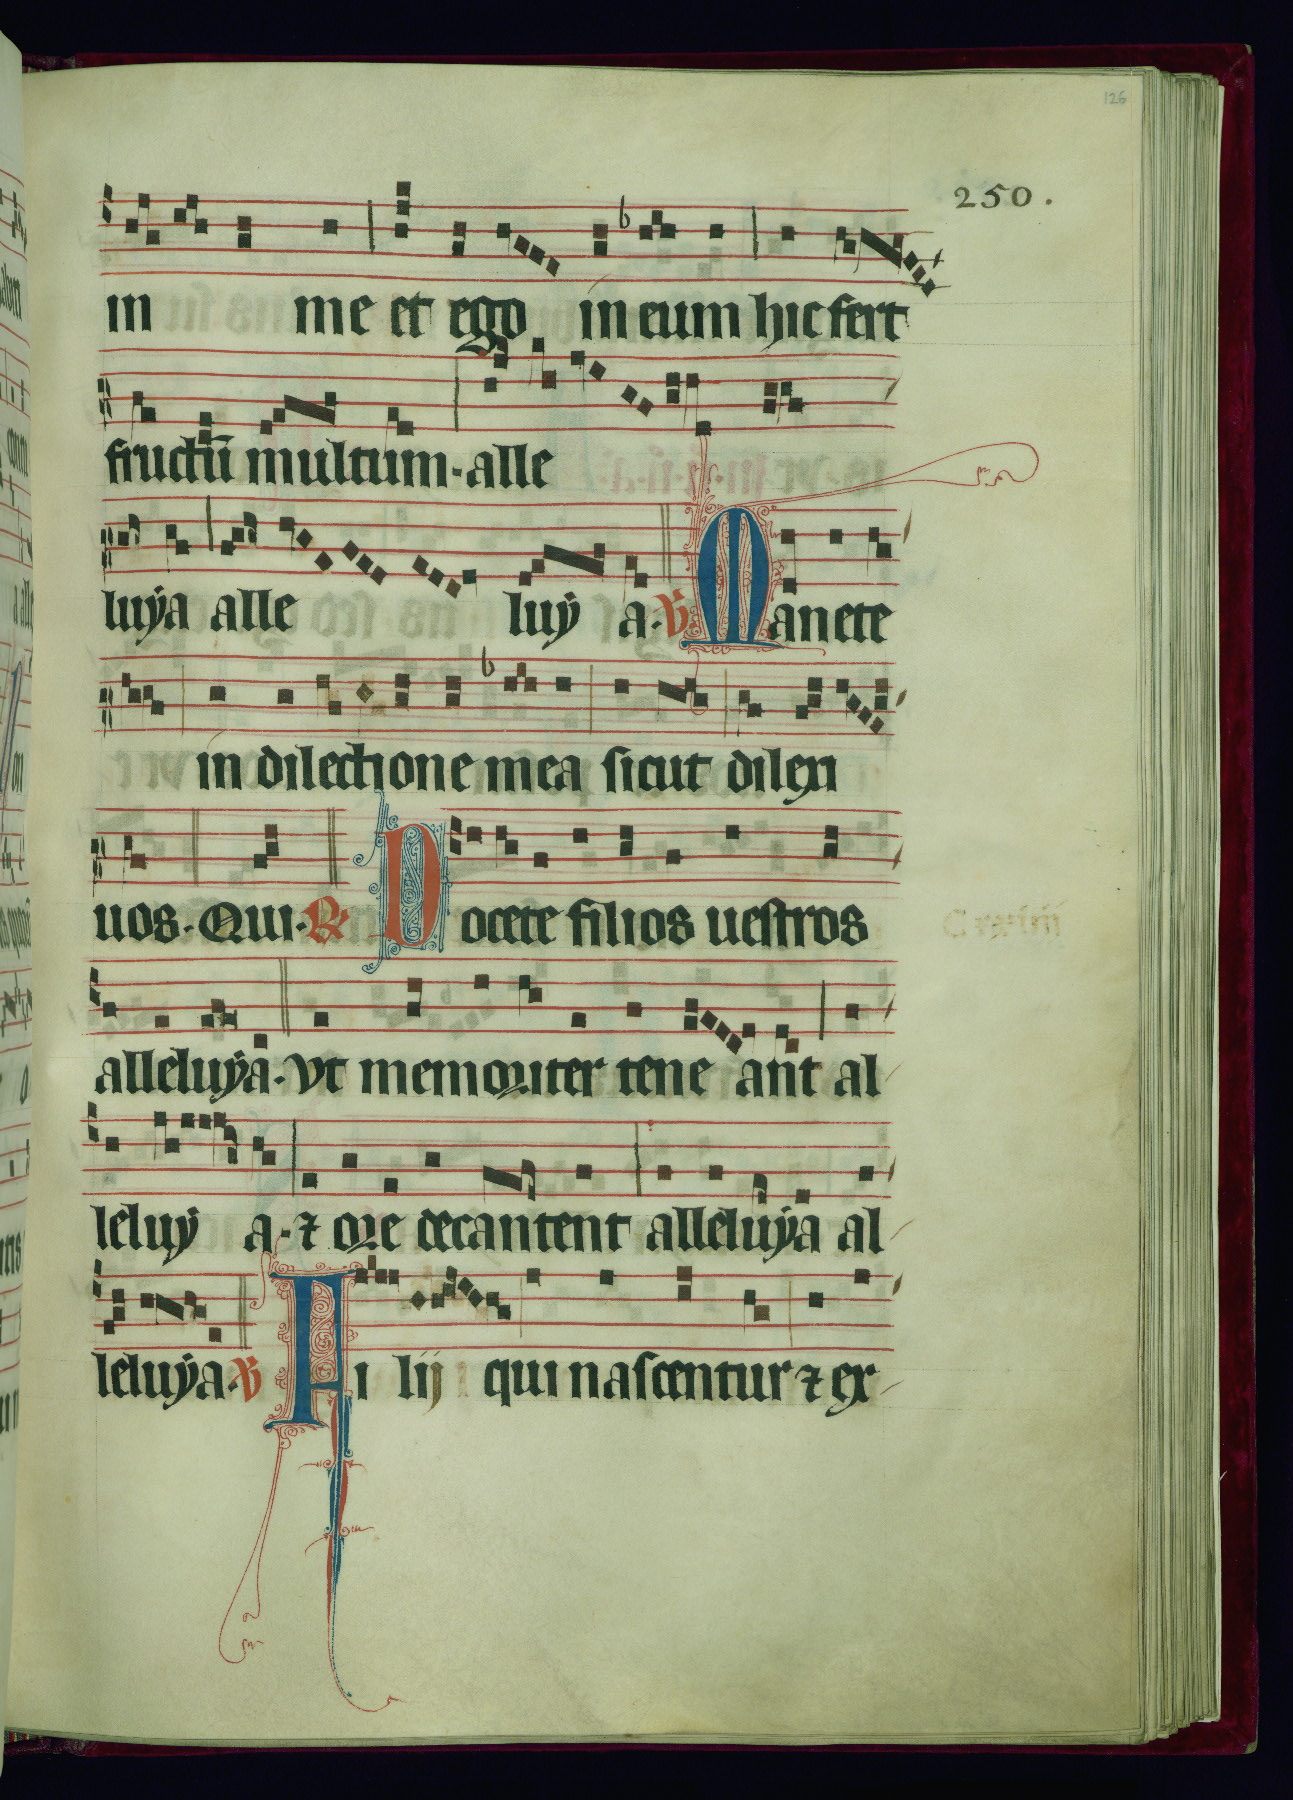 126
250.
in me et ego in eum hic fert
fructū multum· alle
luÿa alle luÿ a· ℣ Manete
in dilectione mea sicut dilexi
uos· Qui· ℟ Docete filios uestros
alleluÿa· Vt memoriter tene ant al
leluÿ a· ⁊ ore decantent alleluÿa al
leluÿa· ℣ Fi lij qui nascentur ⁊ ex